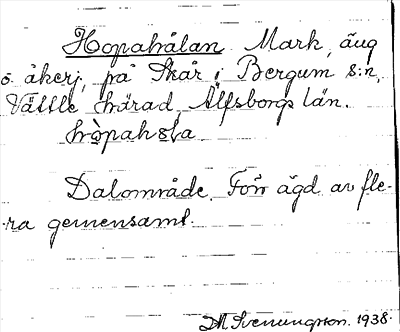 Hopahålan Mark, äng
o. åkerj, på Skår i Bergum s:n,
Vättle härad, Älfsborgs län.

Dalområde. Förr ägd av fle-
ra gemensamt.
Svenungson. 1938.